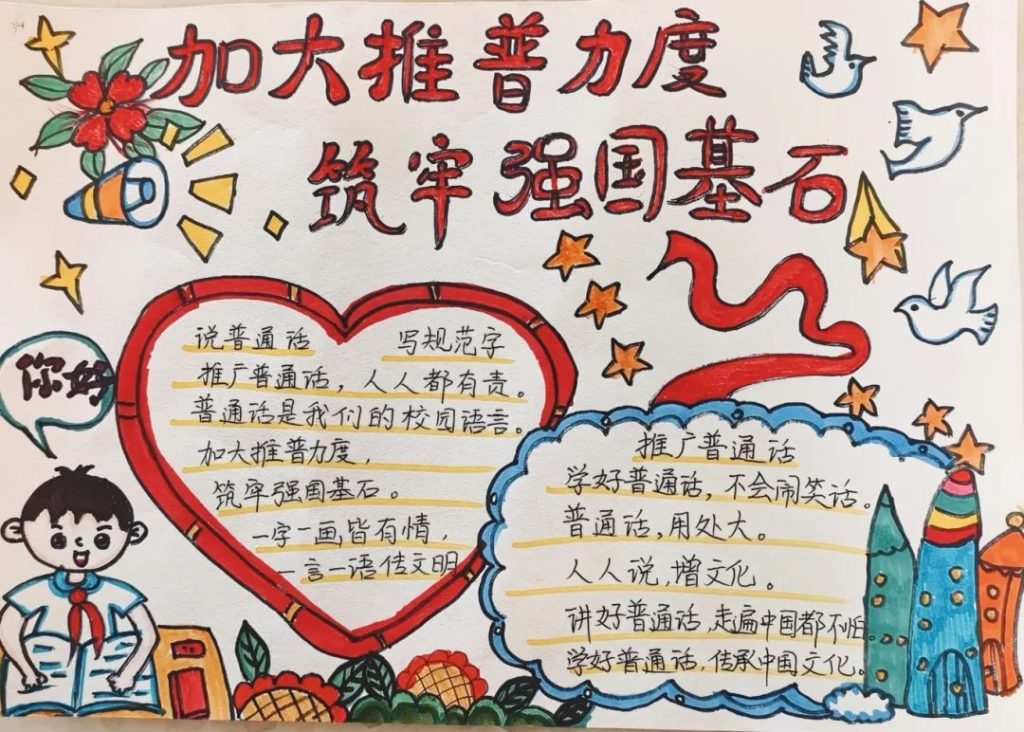 加大推普力度
筑牢强国基石
你好
说普通话 写规范字
推广普通话，人人都有责。
普通话是我们的校园语言。
加大推普力度，
筑牢强国基石。
一字一画皆有情，
一言一语传文明
推广普通话
学好普通话，不会闹笑话。
普通话，用处大。
人人说，增文化。
讲好普通话，走遍中国都不怕。
学好普通话，传承中国文化。